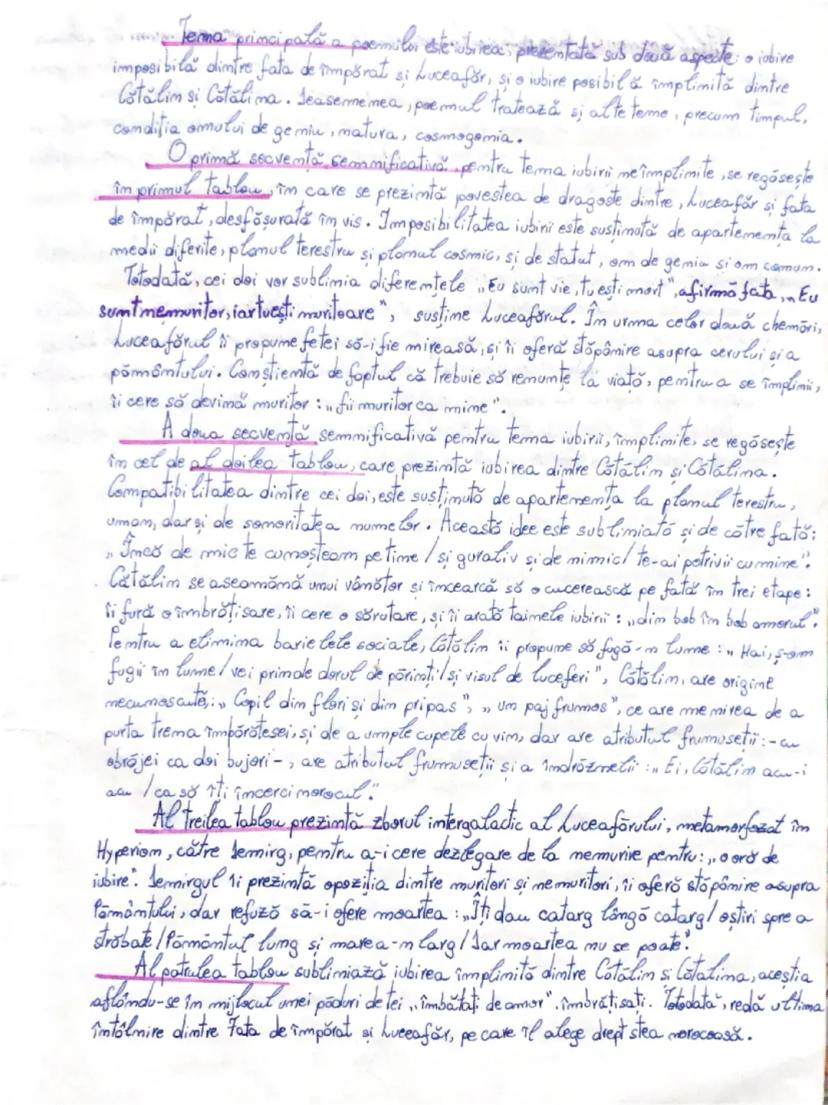 Tema principală a poemului este iubirea, prezentată sub două aspecte: o iubire
imposibilă dintre fata de împărat și Luceafăr, și o iubire posibilă împlinită dintre
Cătălin și Cătălina. Deasemenea, poemul tratează și alte teme, precum timpul,
condiția omului de geniu, natura, cosmogonia.
O primă secvență semnificativă, pentru tema iubirii neîmplinite, se regăsește
în primul tablou, în care se prezintă povestea de dragoste dintre, Luceafăr și fata
de împărat, desfășurată în vis. Imposibilitatea iubirii este susținută de apartenența la
medii diferite, planul terestru și planul cosmic, și de statut, om de geniu și om comun.
Totodată, cei doi vor sublimia diferențele „Eu sunt vie, tu ești mort", afirmă fata, „Eu
sunt nemuritor, iar tu ești muritoare" susține Luceafărul. În urma celor două chemări,
Luceafărul îi propune fetei să-i fie mireasă, și îi oferă stăpânire asupra cerului și a
pământului. Conștientă de faptul că trebuie să renunțe la viață, pentru a se împlini,
îi cere să devină muritor: „fii muritor ca mine".
A doua secvență semnificativă pentru tema iubirii, împlinite, se regăsește
în cel de al doilea tablou, care prezintă iubirea dintre Cătălin și Cătălina.
Compatibilitatea dintre cei doi, este susținută de apartenența la planul terestru,
uman, dar și de sonoritatea numelor. Această idee este sublimiată și de către fată:
„Încă de mic te cunoșteam pe tine / și guraliv și de nimic / te-ai potrivi cu mine".
Cătălin se aseamănă unui vânător și încearcă să o cucerească pe fată în trei etape:
îi fură o îmbrățisare, îi cere o sărutare, și îi arată tainele iubirii: „din bob în bob amorul".
Pentru a elimina barietele sociale, Cătălin îi propune să fugă-n lume: „Hai, ș-om
fugi în lume / vei pierde dorul de părinți / și visul de luceferi", Cătălin, are origine
necunoscute: „Copil din flori și din pripas", „un paj frumos", ce are menirea de a
purta trena împărătesei, și de a umple cupele cu vin, dar are atributul frumuseții: -cu
obrăjei ca doi bujori-, are atributul frumuseții și a îndrăznelii: „Ei, Cătălin acu-i
acu / ca să îți încerci norocul."
Al treilea tablou prezintă zborul intergalactic al Luceafărului, metamorfozat în
Hyperion, către Demiurg, pentru a-i cere dezlegare de la nemurire pentru: „o oră de
iubire". Demirgul îi prezintă opoziția dintre muritori și nemuritori, îi oferă stăpânire asupra
Pământului, dar refuză să-i ofere moartea: „Îți dau catarg lângă catarg / oștiri spre a
străbate / Pământul lung și marea-n larg / Dar moartea nu se poate".
Al patrulea tablou sublimiază iubirea împlinită dintre Cătălin și Cătălina, aceștia
aflându-se în mijlocul unei păduri de tei „îmbătați de amor", îmbrățisați. Totodată, redă ultima
întâlnire dintre Fata de împărat și Luceafăr, pe care îl alege drept stea norocoasă.